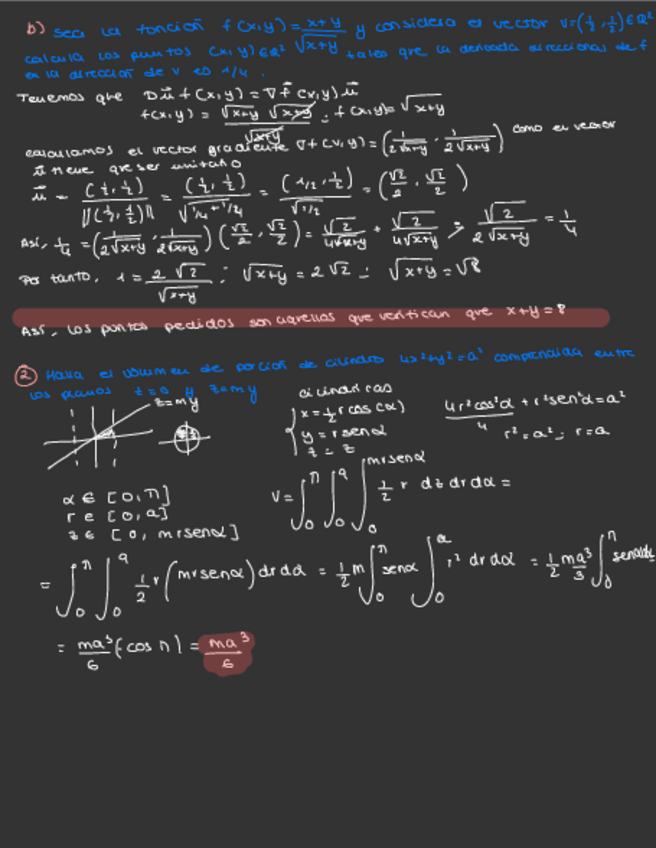 b) Sea la función f(x,y) = x+y / √x+y y considera el vector v=(½,½)∈R²
calcula los puntos (x,y)∈R² tales que la derivada direccional de f
en la dirección de v es 1/4.
Tenemos que Dū f(x,y) = ∇f(x,y) ū
f(x,y) = √x+y √x+y / √x+y ; f(x,y)= √x+y
calculamos el vector gradiente ∇f(x,y) = (1/2√x+y , 1/2√x+y) como el vector
ū tiene que ser unitario
ū = (½,½) / ||(½,½)|| = (½,½) / √1/4+1/4 = (1/2,½) / √1/2 = (√2/2 , √2/2)
Así, ¼ = (1/2√x+y , 1/2√x+y) (√2/2 , √2/2) = √2/4√x+y + √2/4√x+y ; √2/2√x+y = 1/4
Por tanto, 1 = 2√2/√x+y ; √x+y = 2√2 ; √x+y = √8
Así, los puntos pedidos son aquellos que verifican que x+y=8
② Halla el volumen de porción de cilindro 4x²+y²=a² comprendida entre
los planos z=0 y z=my
z=my
cilíndricas
x = ½ r cos(α)
y = r senα
z = z
4r²cos²α / 4 + r²sen²α = a²
r² = a² ; r = a
α ∈ [0,π]
r ∈ [0,a]
z ∈ [0, mrsenα]
V = ∫₀^π ∫₀^a ∫₀^mrsenα ½ r dz dr dα =
= ∫₀^π ∫₀^a ½ r (mrsenα) dr dα = ½ m ∫₀^π senα ∫₀^a r² dr dα = ½ ma³/3 ∫₀^π senαdα
= ma³/6 (-cos π) = ma³/6